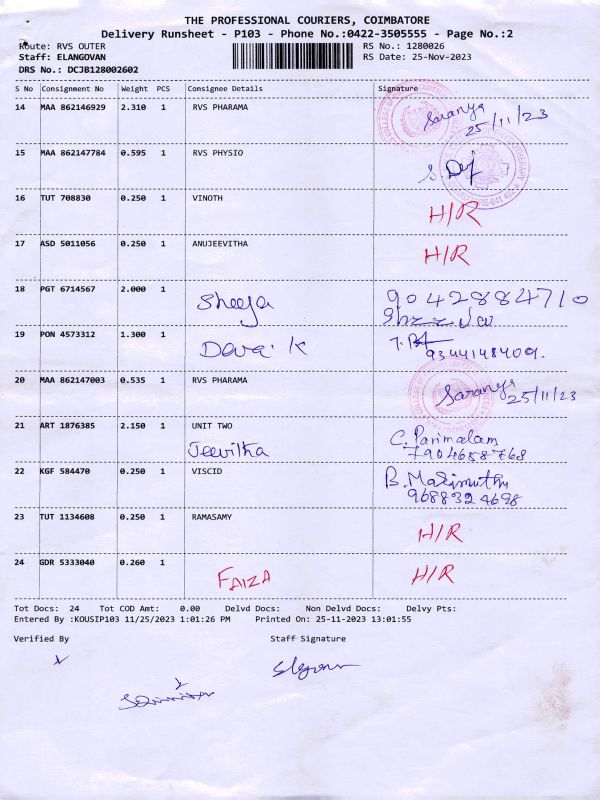 THE PROFESSIONAL COURIERS, COIMBATORE
Delivery Runsheet - P103 - Phone No.:0422-3505555 - Page No.:2
Route: RVS OUTER RS No.: 1280026
Staff: ELANGOVAN RS Date: 25-Nov-2023
DRS No.: DCJB128002602
S No Consignment No Weight PCS Consignee Details Signature
14 MAA 862146929 2.310 1 RVS PHARAMA Saranya
25/11/23
15 MAA 862147784 0.595 1 RVS PHYSIO
16 TUT 708830 0.250 1 VINOTH H/R
17 ASD 5011056 0.250 1 ANUJEEVITHA H/R
18 PGT 6714567 2.000 1 Sheeja 9042884710
19 PON 4573312 1.300 1 Devai K
9344148409.
20 MAA 862147003 0.535 1 RVS PHARAMA Saranya
25/11/23
21 ART 1876385 2.150 1 UNIT TWO C. Parimalam
Jeevitha 7904658768
22 KGF 584470 0.250 1 VISCID B. Marimuthu
9688324698
23 TUT 1134608 0.250 1 RAMASAMY H/R
24 GDR 5333040 0.260 1 FAIZA H/R
Tot Docs: 24 Tot COD Amt: 0.00 Delvd Docs: Non Delvd Docs: Delvy Pts:
Entered By :KOUSIP103 11/25/2023 1:01:26 PM Printed On: 25-11-2023 13:01:55
Verified By Staff Signature